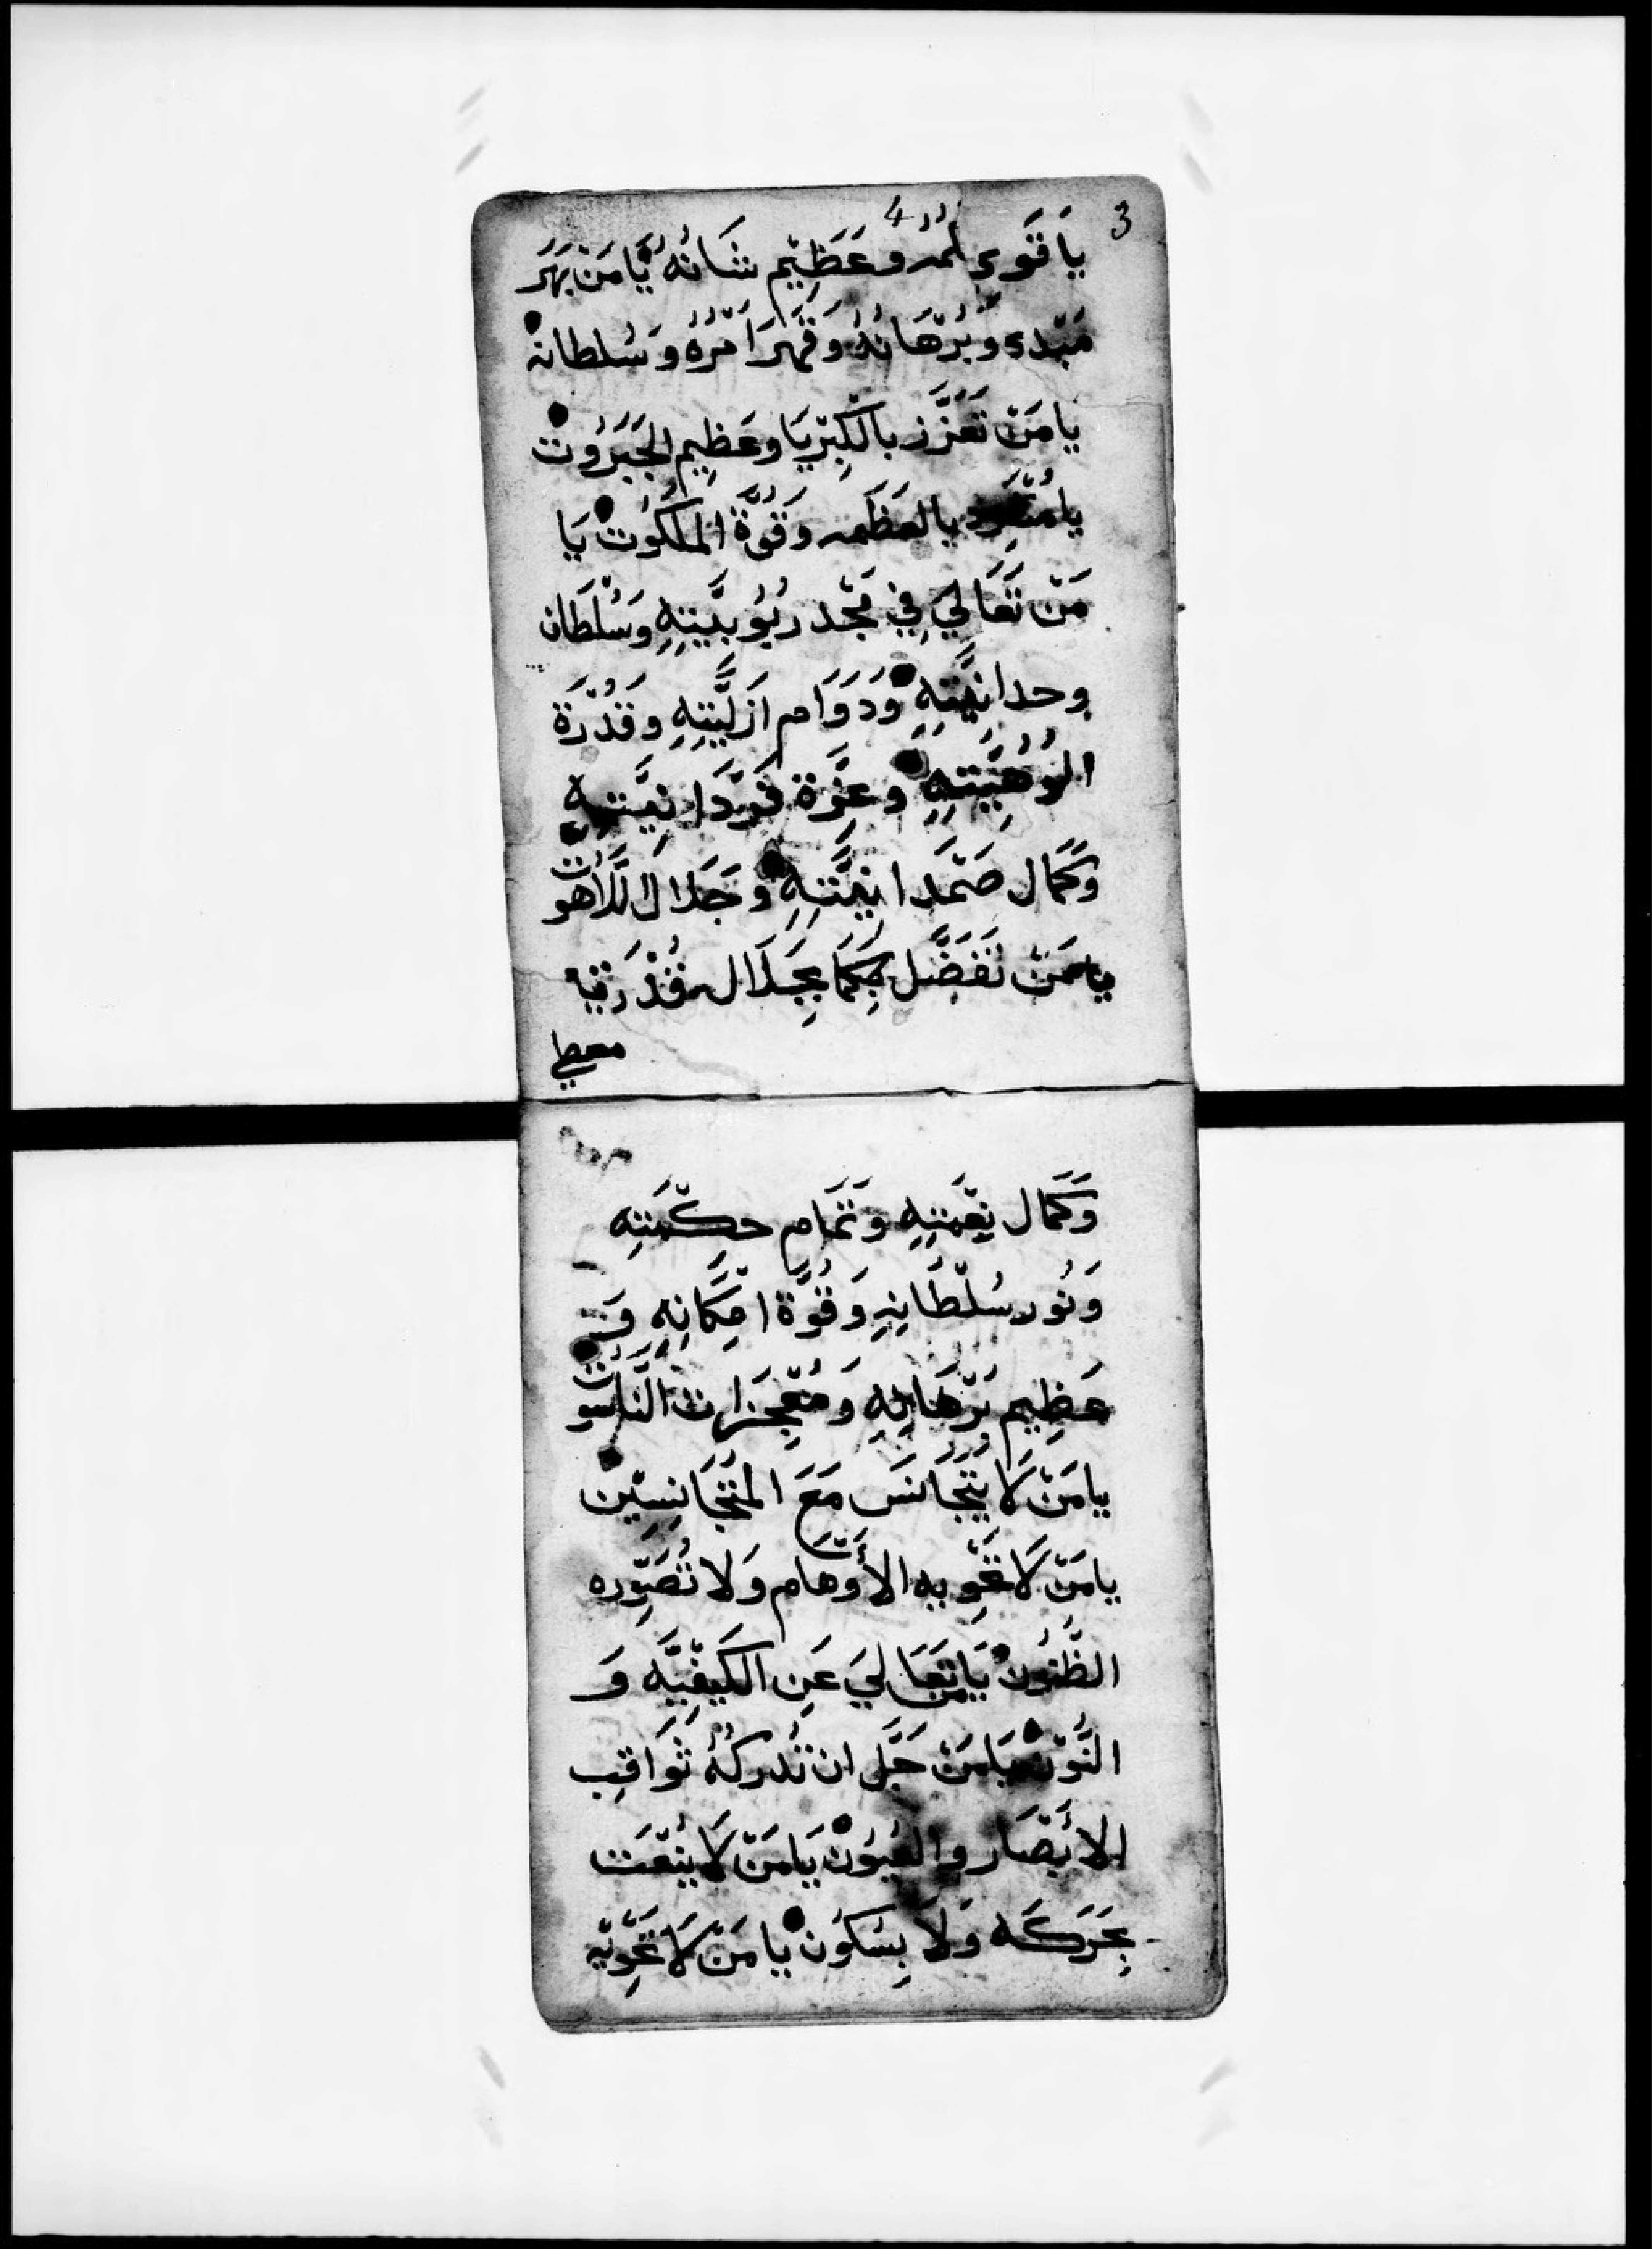 3
4
يَا قَوِي وعَظِيْم شَانُهُ يَّا مَنْ بَهَرَ
مَبْدء وَبُرْهَانُهُ وَقَهَرَ اَمْرُهُ وَسُلطانهْ
يا مَنْ تَعَزَّز بالكِبْرِيَا وعَظِيم الجَبَرُوتْ
يا مُتفَرِد بالعظَمه وَقُوَّة الملكُوتْ يَا
مَنْ تَعَالَي فِي مَجْد ربُوبيَّتِهِ وَسُلْطَان
وحدانيَّتِهِ وَدَوَام اَزليَّتِهِ وقُدْرَة
الُوُهِيَّتِهِ وعِزَّة فَرْدَانِيَّتهِ
وَكَمال صَمْدَانِيَّتِهِ وجَلَال اللَّاهُوتْ
يا مَنْ تَفَضَّل بجَلَال قُدْرَته يا
معطي
وَكَمَال نِعْمَتِهِ وَتَمَام حكْمَتِه
وَنُور سُلْطَانِهِ وَقُوَّة امكَانِهِ وَ
عَظِيم بُرْهَانِهِ وَمُعْجِزَات النَّاسُوتْ
يا مَنْ لَا يَتَجَانَس مَعَ المتَجَانِسِيْن
يا مَنْ لَا تَحْوِيه الأَوْهَام وَلا تُصَوِّره
الظُّنُونْ يَا مَن تَعَالَي عَنِ الكَيفِيَّه وَ
النَّوْن يَا مَنْ جَلَّ ان تُدركُهُ ثَوَاقِب
الابْصَار والعُيُونْ يَا مَنْ لَا يُنْعَت
بِحَرَكَه وَلَا بِسُكُونْ يا مَنْ لَا تَحْوِيْه